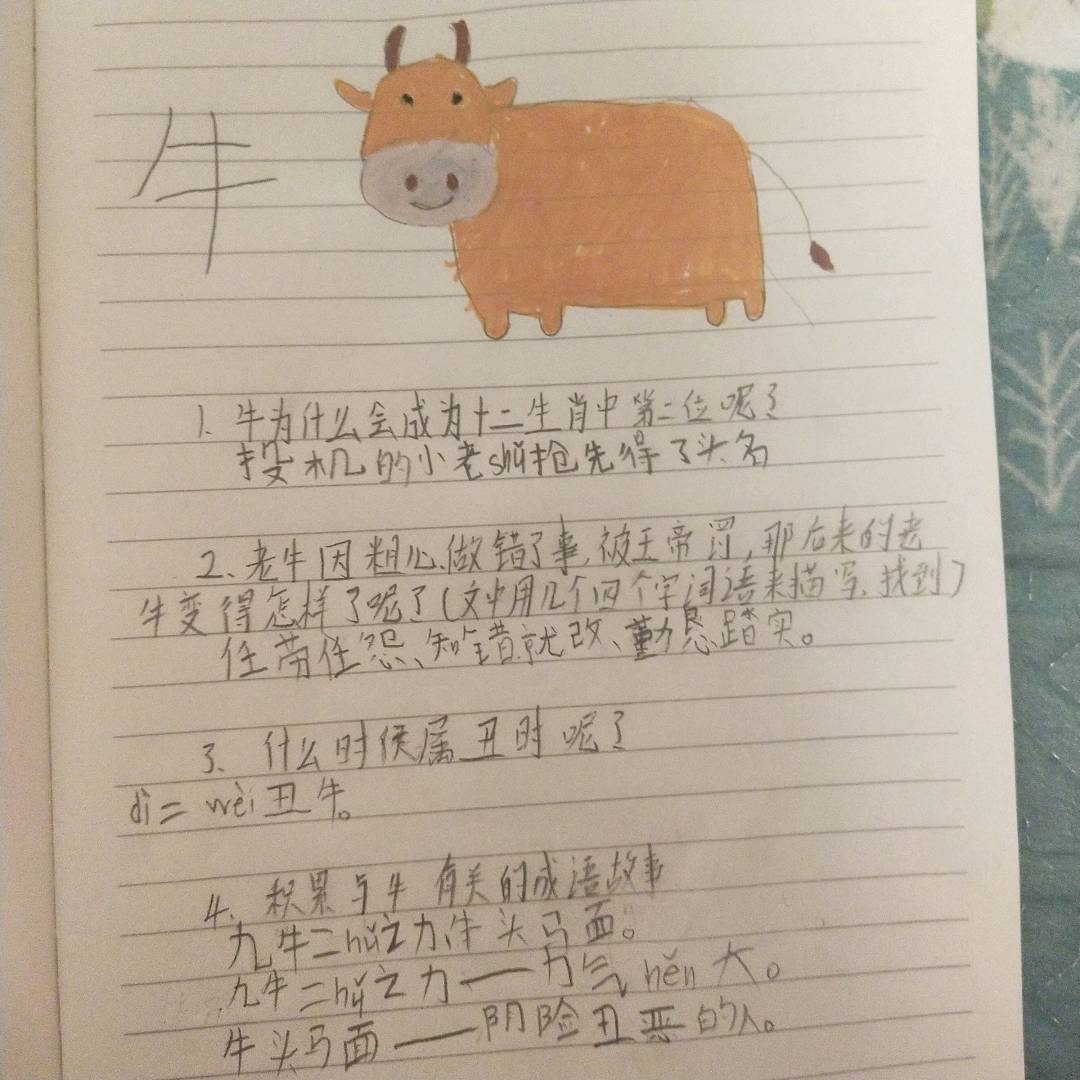 牛
1、牛为什么会成为十二生肖中第二位呢？
投机的小老shǔ抢先得了头名
2、老牛因粗心做错了事,被玉帝罚,那后来的老
牛变得怎样了呢？(文中用几个四个字词语来描写,找到)
任劳任怨、知错就改、勤恳踏实。
3、什么时候属丑时呢？
dì二wèi丑牛。
4、积累与牛有关的成语故事
九牛二hǔ之力、牛头马面。
九牛二hǔ之力——力气hěn大。
牛头马面——阴险丑恶的人。